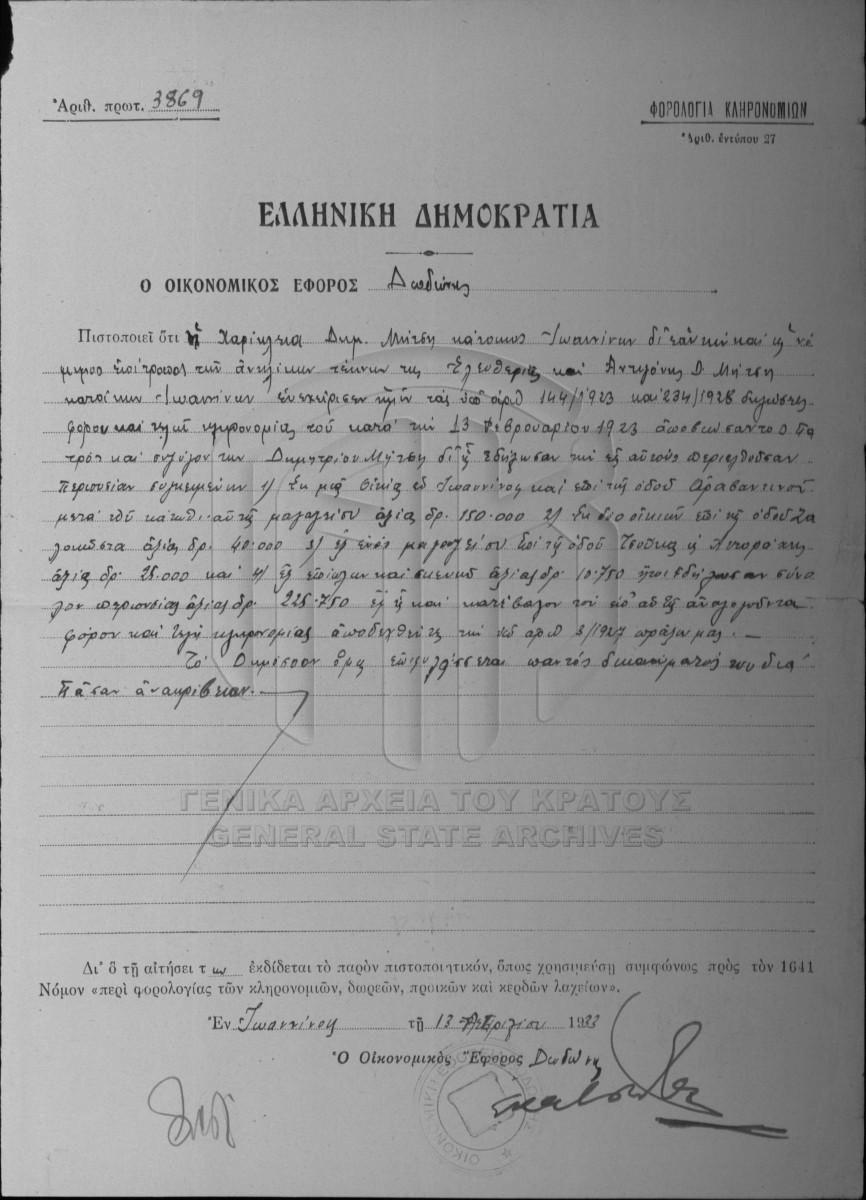 Ἀριθ. πρωτ. 3869
ΦΟΡΟΛΟΓΙΑ ΚΛΗΡΟΝΟΜΙΩΝ
Ἀριθ. ἐντύπου 27
ΕΛΛΗΝΙΚΗ ΔΗΜΟΚΡΑΤΙΑ
Ο ΟΙΚΟΝΟΜΙΚΟΣ ΕΦΟΡΟΣ Δωδώνης
Πιστοποιεῖ ὅτι ἡ Χαρίκλεια Δημ. Μήτση κάτοικος Ἰωαννίνων
τῶν ἀνηλίκων τέκνων της Ἐλευθερίας καὶ Ἀντιγόνης Δ. Μήτση
κατοίκων Ἰωαννίνων ἐνεχείρισεν ἡμῖν τὰς ὑπ' ἀριθ 144/1923 καὶ 234/1928 δηλώσεις
φόρου καὶ κληρονομίας τοῦ κατὰ τὴν 13 Φεβρουαρίου 1923 ἀποβιώσαντος πα
τρὸς καὶ συζύγου των Δημητρίου Μήτση δι' ἧς ἐδήλωσαν τὴν εἰς αὐτοὺς περιελθοῦσαν
περιουσίαν συγκειμένην 1) Ἐκ μιᾶς οἰκίας ἐν Ἰωαννίνοις καὶ ἐπὶ τῆς ὁδοῦ Ἀραβαντινοῦ
μετὰ τοῦ κάτωθι αὐτῆς μαγαζείου ἀξίας δρ. 150.000 2) Ἐκ δύο οἰκιῶν ἐπὶ τῆς ὁδοῦ
ἀξίας δρ. 40.000 3) ἐξ ἑνὸς μαγαζείου ἐπὶ τῆς ὁδοῦ
ἀξίας δρ. 25.000 καὶ 4) ἐξ ἐπίπλων καὶ σκευῶν ἀξίας δρ. 10.750 ἤτοι ἐδήλωσαν σύνο
λον περιουσίας ἀξίας δρ. 225.750 ἐξ ἧς καὶ κατέβαλον τὸν ἀναλογοῦντα
φόρον καὶ τέλη κληρονομίας ἀποδεχθέντες τὴν ὑπ' ἀριθ 3/1927 πρᾶξιν μας.
Τὸ Δημόσιον ὅμως ἐπιφυλάσσεται παντὸς δικαιώματός του διὰ
πᾶσαν ἀνακρίβειαν.
ΓΕΝΙΚΑ ΑΡΧΕΙΑ ΤΟΥ ΚΡΑΤΟΥΣ
GENERAL STATE ARCHIVES
Δι' ὃ τῇ αἰτήσει των ἐκδίδεται τὸ παρὸν πιστοποιητικόν, ὅπως χρησιμεύσῃ συμφώνως πρὸς τὸν 1641
Νόμον «περὶ φορολογίας τῶν κληρονομιῶν, δωρεῶν, προικῶν καὶ κερδῶν λαχείων».
Ἐν Ἰωαννίνοις τῇ 13 Ἀπριλίου 1933
Ὁ Οἰκονομικὸς Ἔφορος Δωδώνης